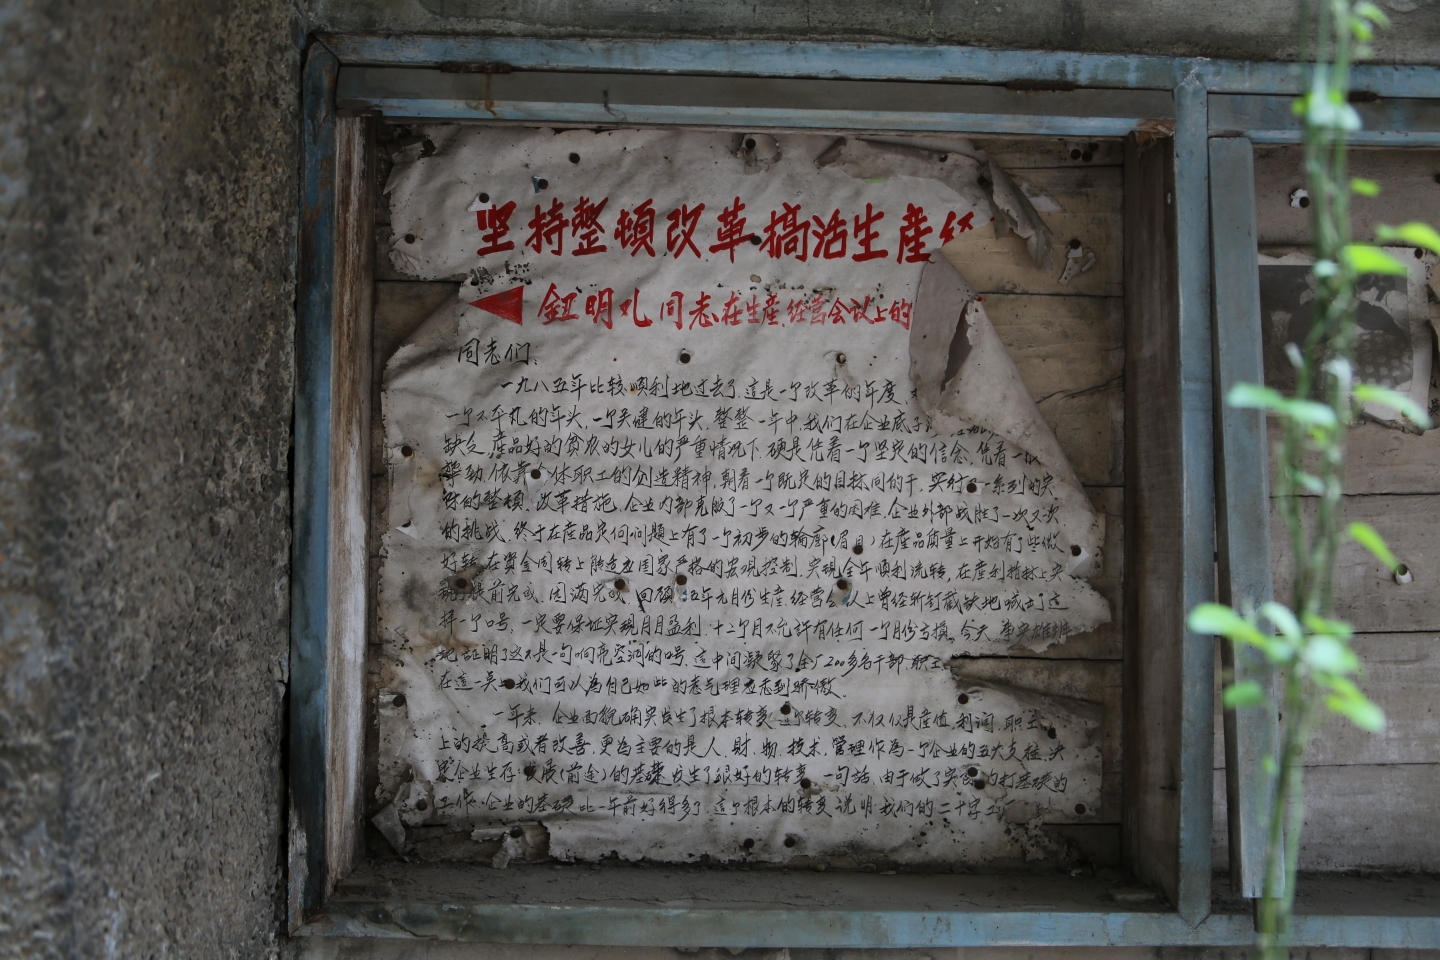 坚持整頓改革搞活生産经
鈕明 同志在生産经营会议上的
同志们:
一九八五年比较順利地过去了.這是一个改革的年度,
一个不平凡的年头,一个关健的年头,整整一年中,我们在企业底子
缺乏,産品好的貧农的女儿的严重情况下,硬是凭着一个坚定的信念,凭着一
劲,依靠 体职工的创造精神,朝着一个既定的目标同的干,实行 一系列的实
的整頓,改革措施,企业内部克服了一个又一个严重的困难,企业外部战胜了一次又一次
的挑战,终于在産品定向问題上有了一个初步的輪廓(眉目)在産品质量上开始有了些微
好转,在資金周转上能适应国家严格的宏观控制,实現全年顺利流转,在産利指标上实
現了提前完成,圆满完成,回顾 五年元月份生産,经营会议上曾经斩钉截鉄地喊出了這
样一个口号,一定要保证实現月月盈利,十二个月不允許有任何一个月份亏損,今天,事实雄辨
地証明了这不是一句响亮空洞的口号,這中间凝聚了全厂200多名干部,职工
在這一点上我们可以為自己如此的志气理应感到骄傲.
一年来,企业面貌确实发生了根本转变,這个转变,不仅仅是産值,利润,职工
上的提高或者改善,更為主要的是人,財,物,技术,管理作為一个企业的五大支柱,决
定企业生存,发展(前途)的基礎,发生了很好的转变,一句話,由于做了实 的打基礎的
工作,企业的基礎比一年前好得多了,這个根本的转变,说明我们的二十字